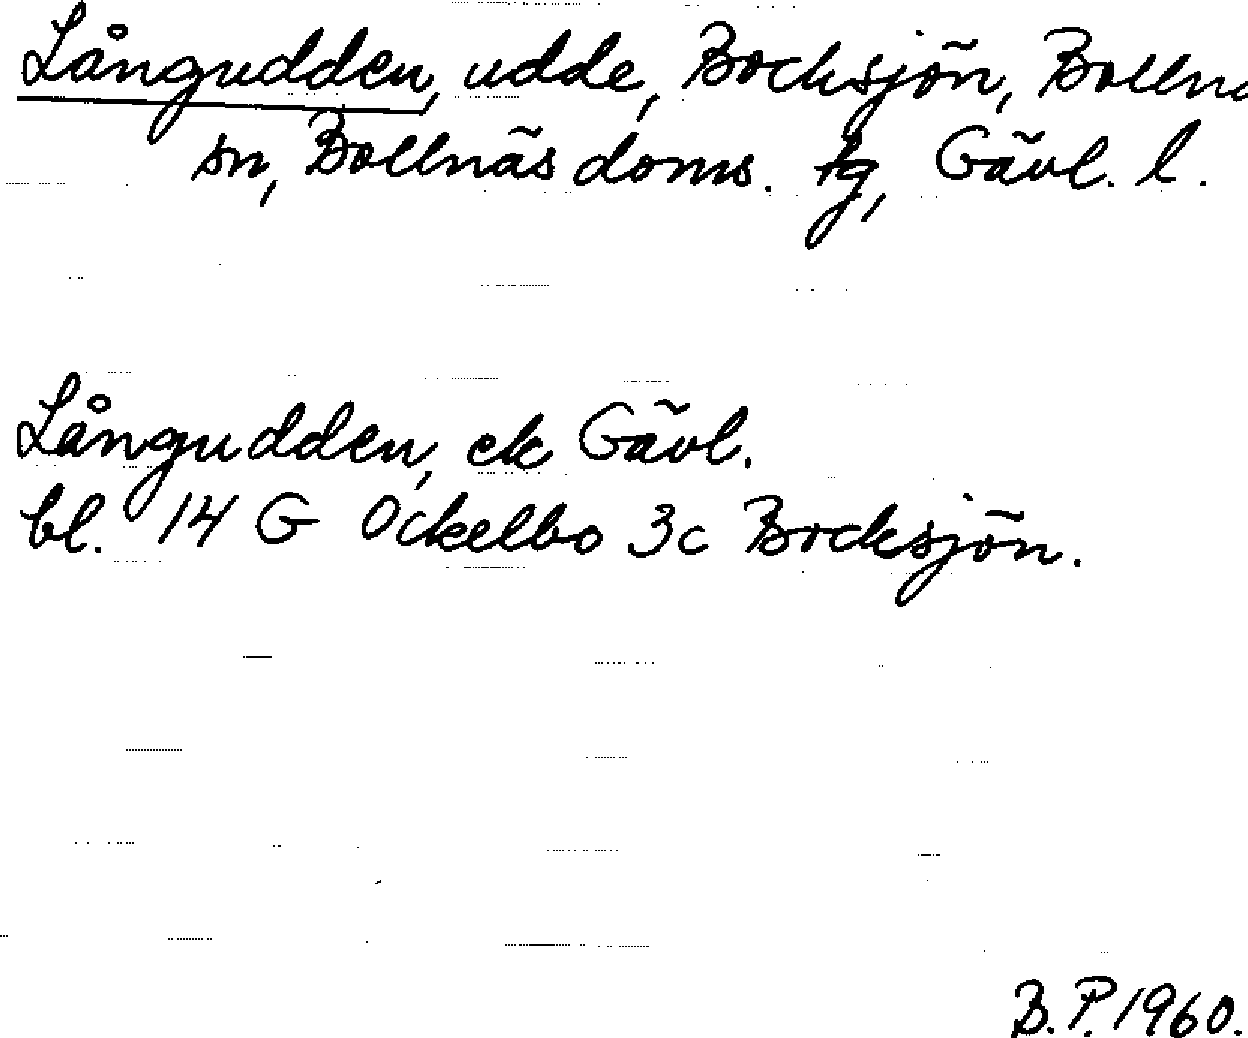 Långudden, udde, Bocksjön, Bollnä
sn, Bollnäs doms. tg, Gävl. l.
Långudden, ek Gävl.
bl. 14 G Ockelbo 3c Bocksjön.
B.P. 1960.